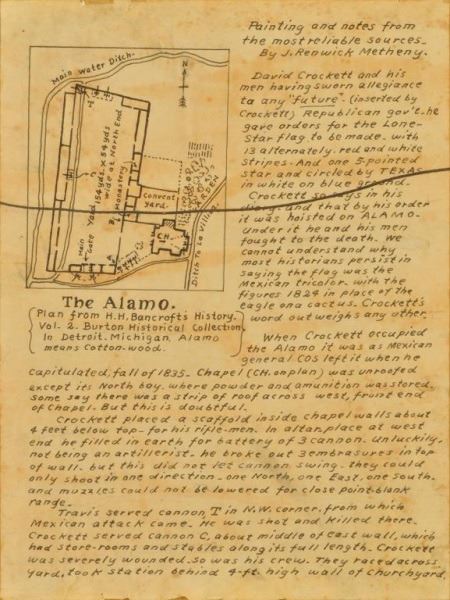 Painting and notes from
the most reliable sources_
By J. Renwick Metheny.
David Crockett and his
men having sworn allegiance
to any "future" (inserted by
Crockett) Republican gov't. he
gave orders for the Lone-
Star flag to be made. with
13 alternately. red and white
stripes. And one 5-pointed
star and circled by TEXAS
in white on blue ground.
Crockett so says in his
and that by his order
it was hoisted on ALAMO.
Under it he and his men
fought to the death. We
cannot understand why
most historians persist in
saying the flag was the
Mexican tricolor. with the
figures 1824 in place of the
eagle on a cactus. Crockett's
word outweighs any other.
When Crockett occupied
the Alamo it was as Mexican
general COS left it when he
capitulated, fall of 1835- Chapel (CH. on plan) was unroofed
except its North bay. where powder and amunition was stored.
Some say there was a strip of roof across west, front end
of Chapel. But this is doubtful.
Crockett placed a scaffold inside chapel walls about
4 feet below top- for his rifle-men. In altar place at west
end he filled in earth for battery of 3 cannon. Unlucking-
not being an artillerist. he broke out 3 embrasures in top
of wall. but this did not let cannon swing. they could
only shoot in one direction. one North, one East, one South.
and muzzles could not be lowered for close point-blank
range.
Travis served cannon T in N.W. corner. from which
Mexican attack came. He was shot and killed there.
Crockett served cannon C, about middle of east wall, which
had store-rooms and stables along its full length. Crockett
was severely wounded. so was his crew. They raced across
Yard, took station behind 4-ft. high wall of Churchyard,
Main Water Ditch.
N
T
Yard 154 yds. x 54 yds.
wide at North End
Monastery
Convent
Yard.
CH.
Main
Gate
Ditch To La Village.
The Alamo.
Plan from H.H. Bancroft's History.
Vol. 2. Burton Historical Collection.
In Detroit. Michigan. Alamo
means Cotton-wood.